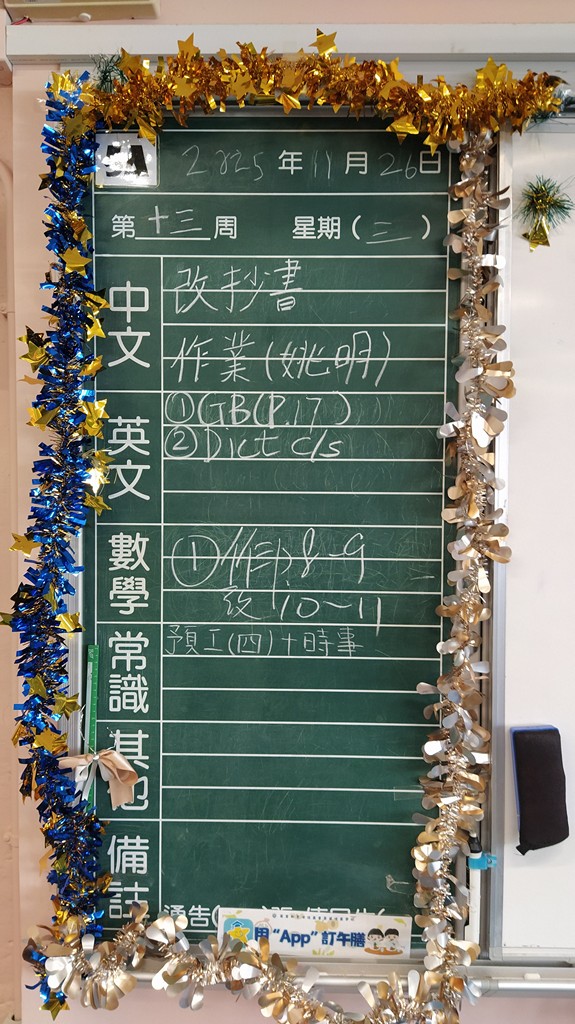 2025年11月26日
第十三周 星期(三)
中文
改抄書
作業(姚明)
英文
①GB(P.17)
②Dict c/s
數學
①作P.8-9
改10~11
常識
預工(四)+時事
其他
備註
通告(
用“App”訂午膳